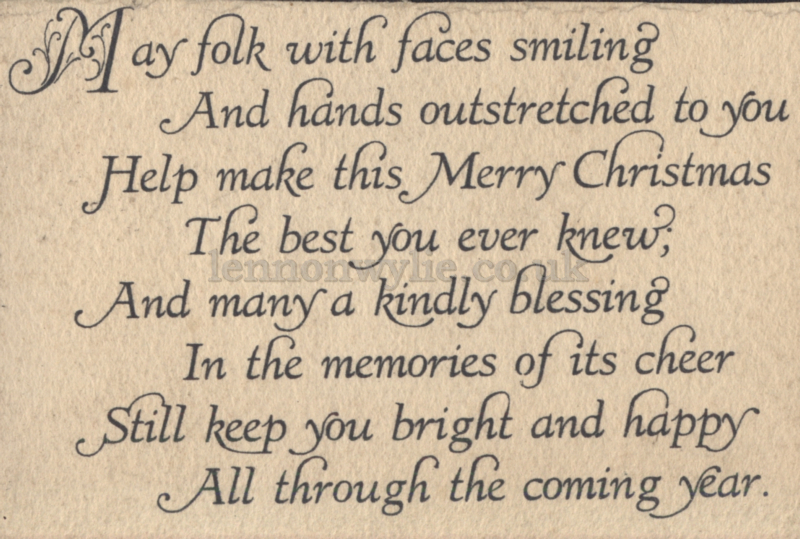 May folk with faces smiling
And hands outstretched to you
Help make this Merry Christmas
The best you ever knew;
lennonwylie.co.uk
And many a kindly blessing
In the memories of its cheer
Still keep you bright and happy
All through the coming year.